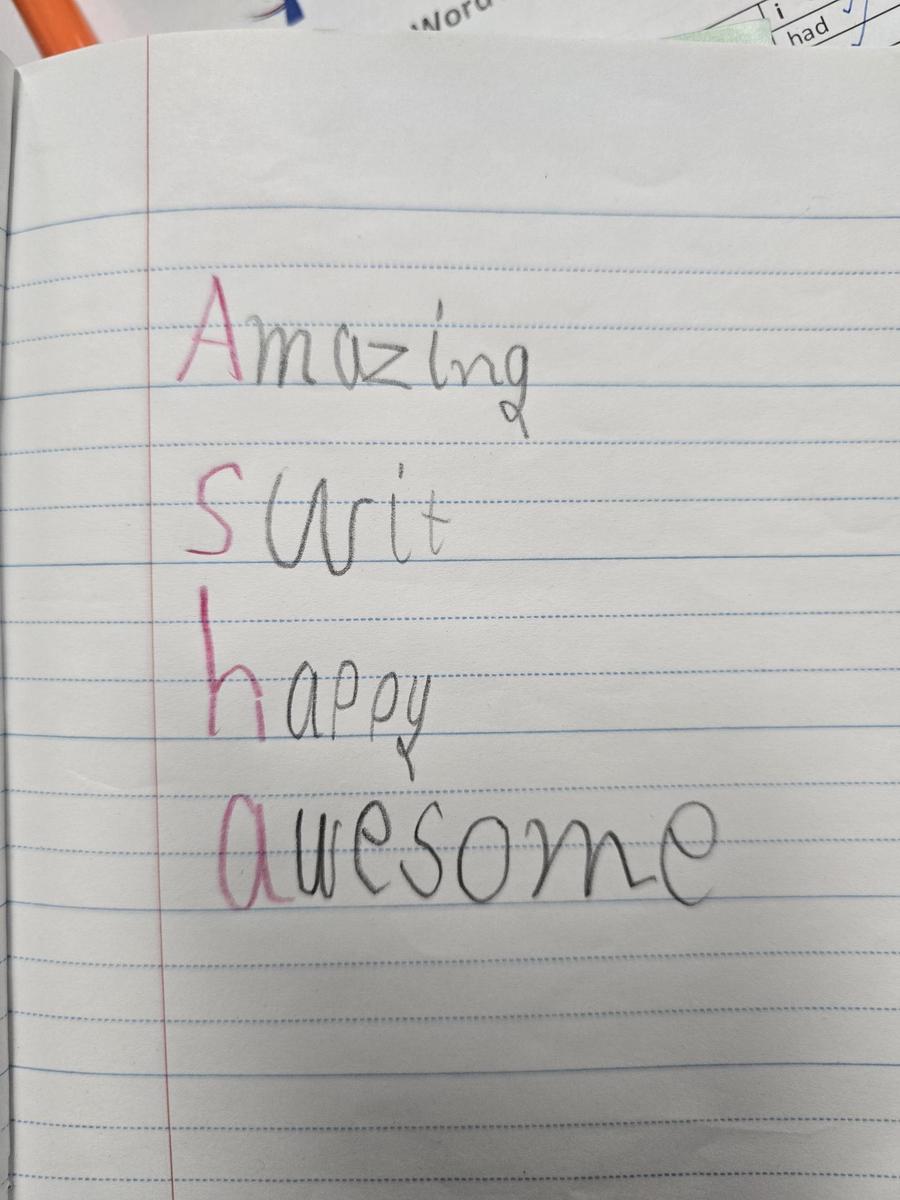 Word
i
had
Amazing
swit
happy
awesome